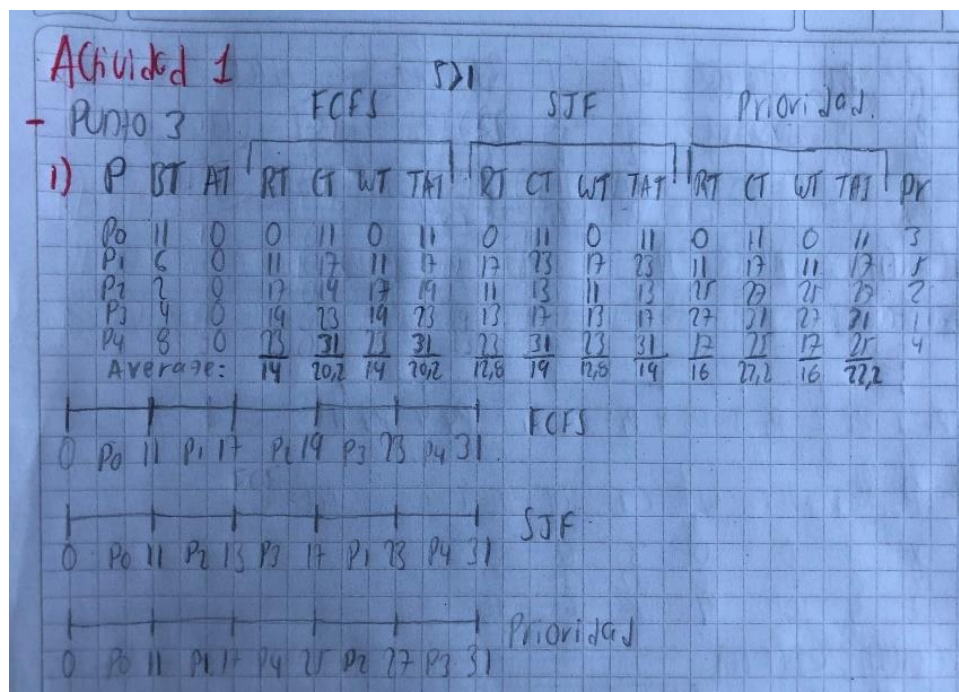 Actividad 1
5>1
- Punto 3 FCFS SJF Prioridad.
1) P BT AT RT CT WT TAT RT CT WT TAT RT CT WT TAT Pr
P0 11 0 0 11 0 11 0 11 0 11 0 11 0 11 3
P1 6 0 11 17 11 17 17 23 17 23 11 17 11 17 5
P2 2 0 17 19 17 19 11 13 11 13 25 27 25 27 2
P3 4 0 19 23 19 23 13 17 13 17 27 31 27 31 1
P4 8 0 23 31 23 31 23 31 23 31 17 25 17 25 4
Average: 14 20,2 14 20,2 12,8 19 12,8 19 16 22,2 16 22,2
FCFS
0 P0 11 P1 17 P2 19 P3 23 P4 31
SJF
0 P0 11 P2 13 P3 17 P1 23 P4 31
Prioridad
0 P0 11 P1 17 P4 25 P2 27 P3 31